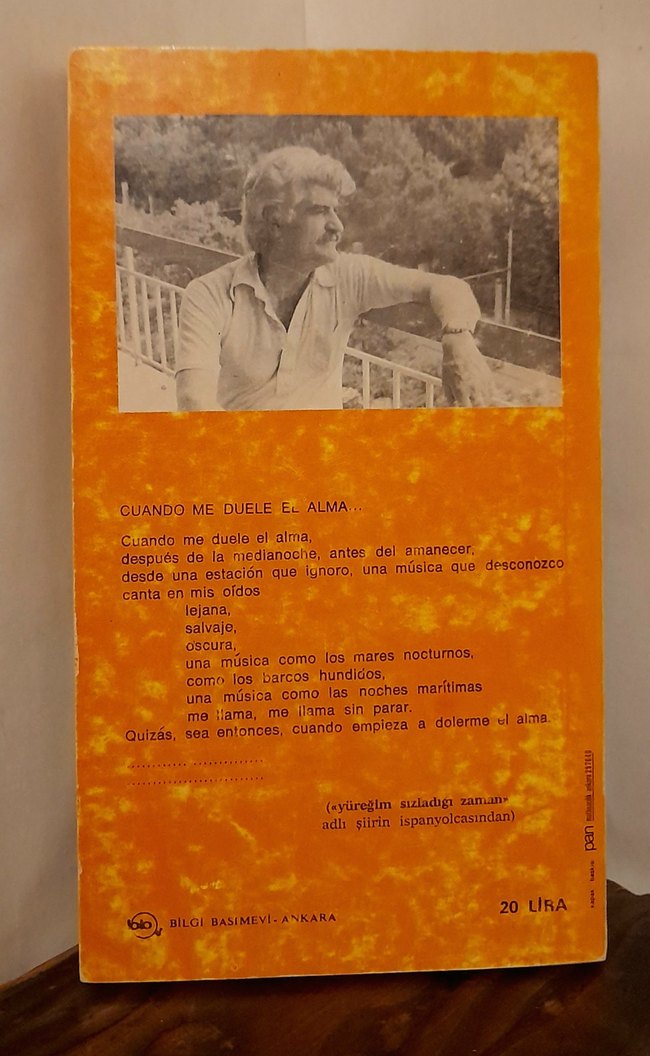 CUANDO ME DUELE EL ALMA...
Cuando me duele el alma,
después de la medianoche, antes del amanecer,
desde una estación que ignoro, una música que desconozco
canta en mis oídos
lejana,
salvaje,
oscura,
una música como los mares nocturnos,
como los barcos hundidos,
una música como las noches marítimas
me llama, me llama sin parar.
Quizás, sea entonces, cuando empieza a dolerme el alma.
.................. ..................
......................................
(«yüreğim sızladığı zaman»
adlı şiirin ispanyolcasından)
BİLGİ BASIMEVİ - ANKARA
20 LİRA
pan